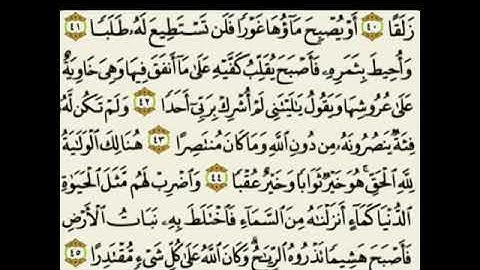 زَلَقًا ۝٤٠ أَوْ يُصْبِحَ مَآؤُهَا غَوْرًا فَلَن تَسْتَطِيعَ لَهُۥ طَلَبًا ۝٤١
وَأُحِيطَ بِثَمَرِهِۦ فَأَصْبَحَ يُقَلِّبُ كَفَّيْهِ عَلَىٰ مَآ أَنفَقَ فِيهَا وَهِىَ خَاوِيَةٌ
عَلَىٰ عُرُوشِهَا وَيَقُولُ يَٰلَيْتَنِى لَمْ أُشْرِكْ بِرَبِّىٓ أَحَدًا ۝٤٢ وَلَمْ تَكُن لَّهُۥ
فِئَةٌ يَنصُرُونَهُۥ مِن دُونِ ٱللَّهِ وَمَا كَانَ مُنتَصِرًا ۝٤٣ هُنَالِكَ ٱلْوَلَٰيَةُ
لِلَّهِ ٱلْحَقِّ ۚ هُوَ خَيْرٌ ثَوَابًا وَخَيْرٌ عُقْبًا ۝٤٤ وَٱضْرِبْ لَهُم مَّثَلَ ٱلْحَيَوٰةِ
ٱلدُّنْيَا كَمَآءٍ أَنزَلْنَٰهُ مِنَ ٱلسَّمَآءِ فَٱخْتَلَطَ بِهِۦ نَبَاتُ ٱلْأَرْضِ
فَأَصْبَحَ هَشِيمًا تَذْرُوهُ ٱلرِّيَٰحُ ۗ وَكَانَ ٱللَّهُ عَلَىٰ كُلِّ شَىْءٍ مُّقْتَدِرًا ۝٤٥